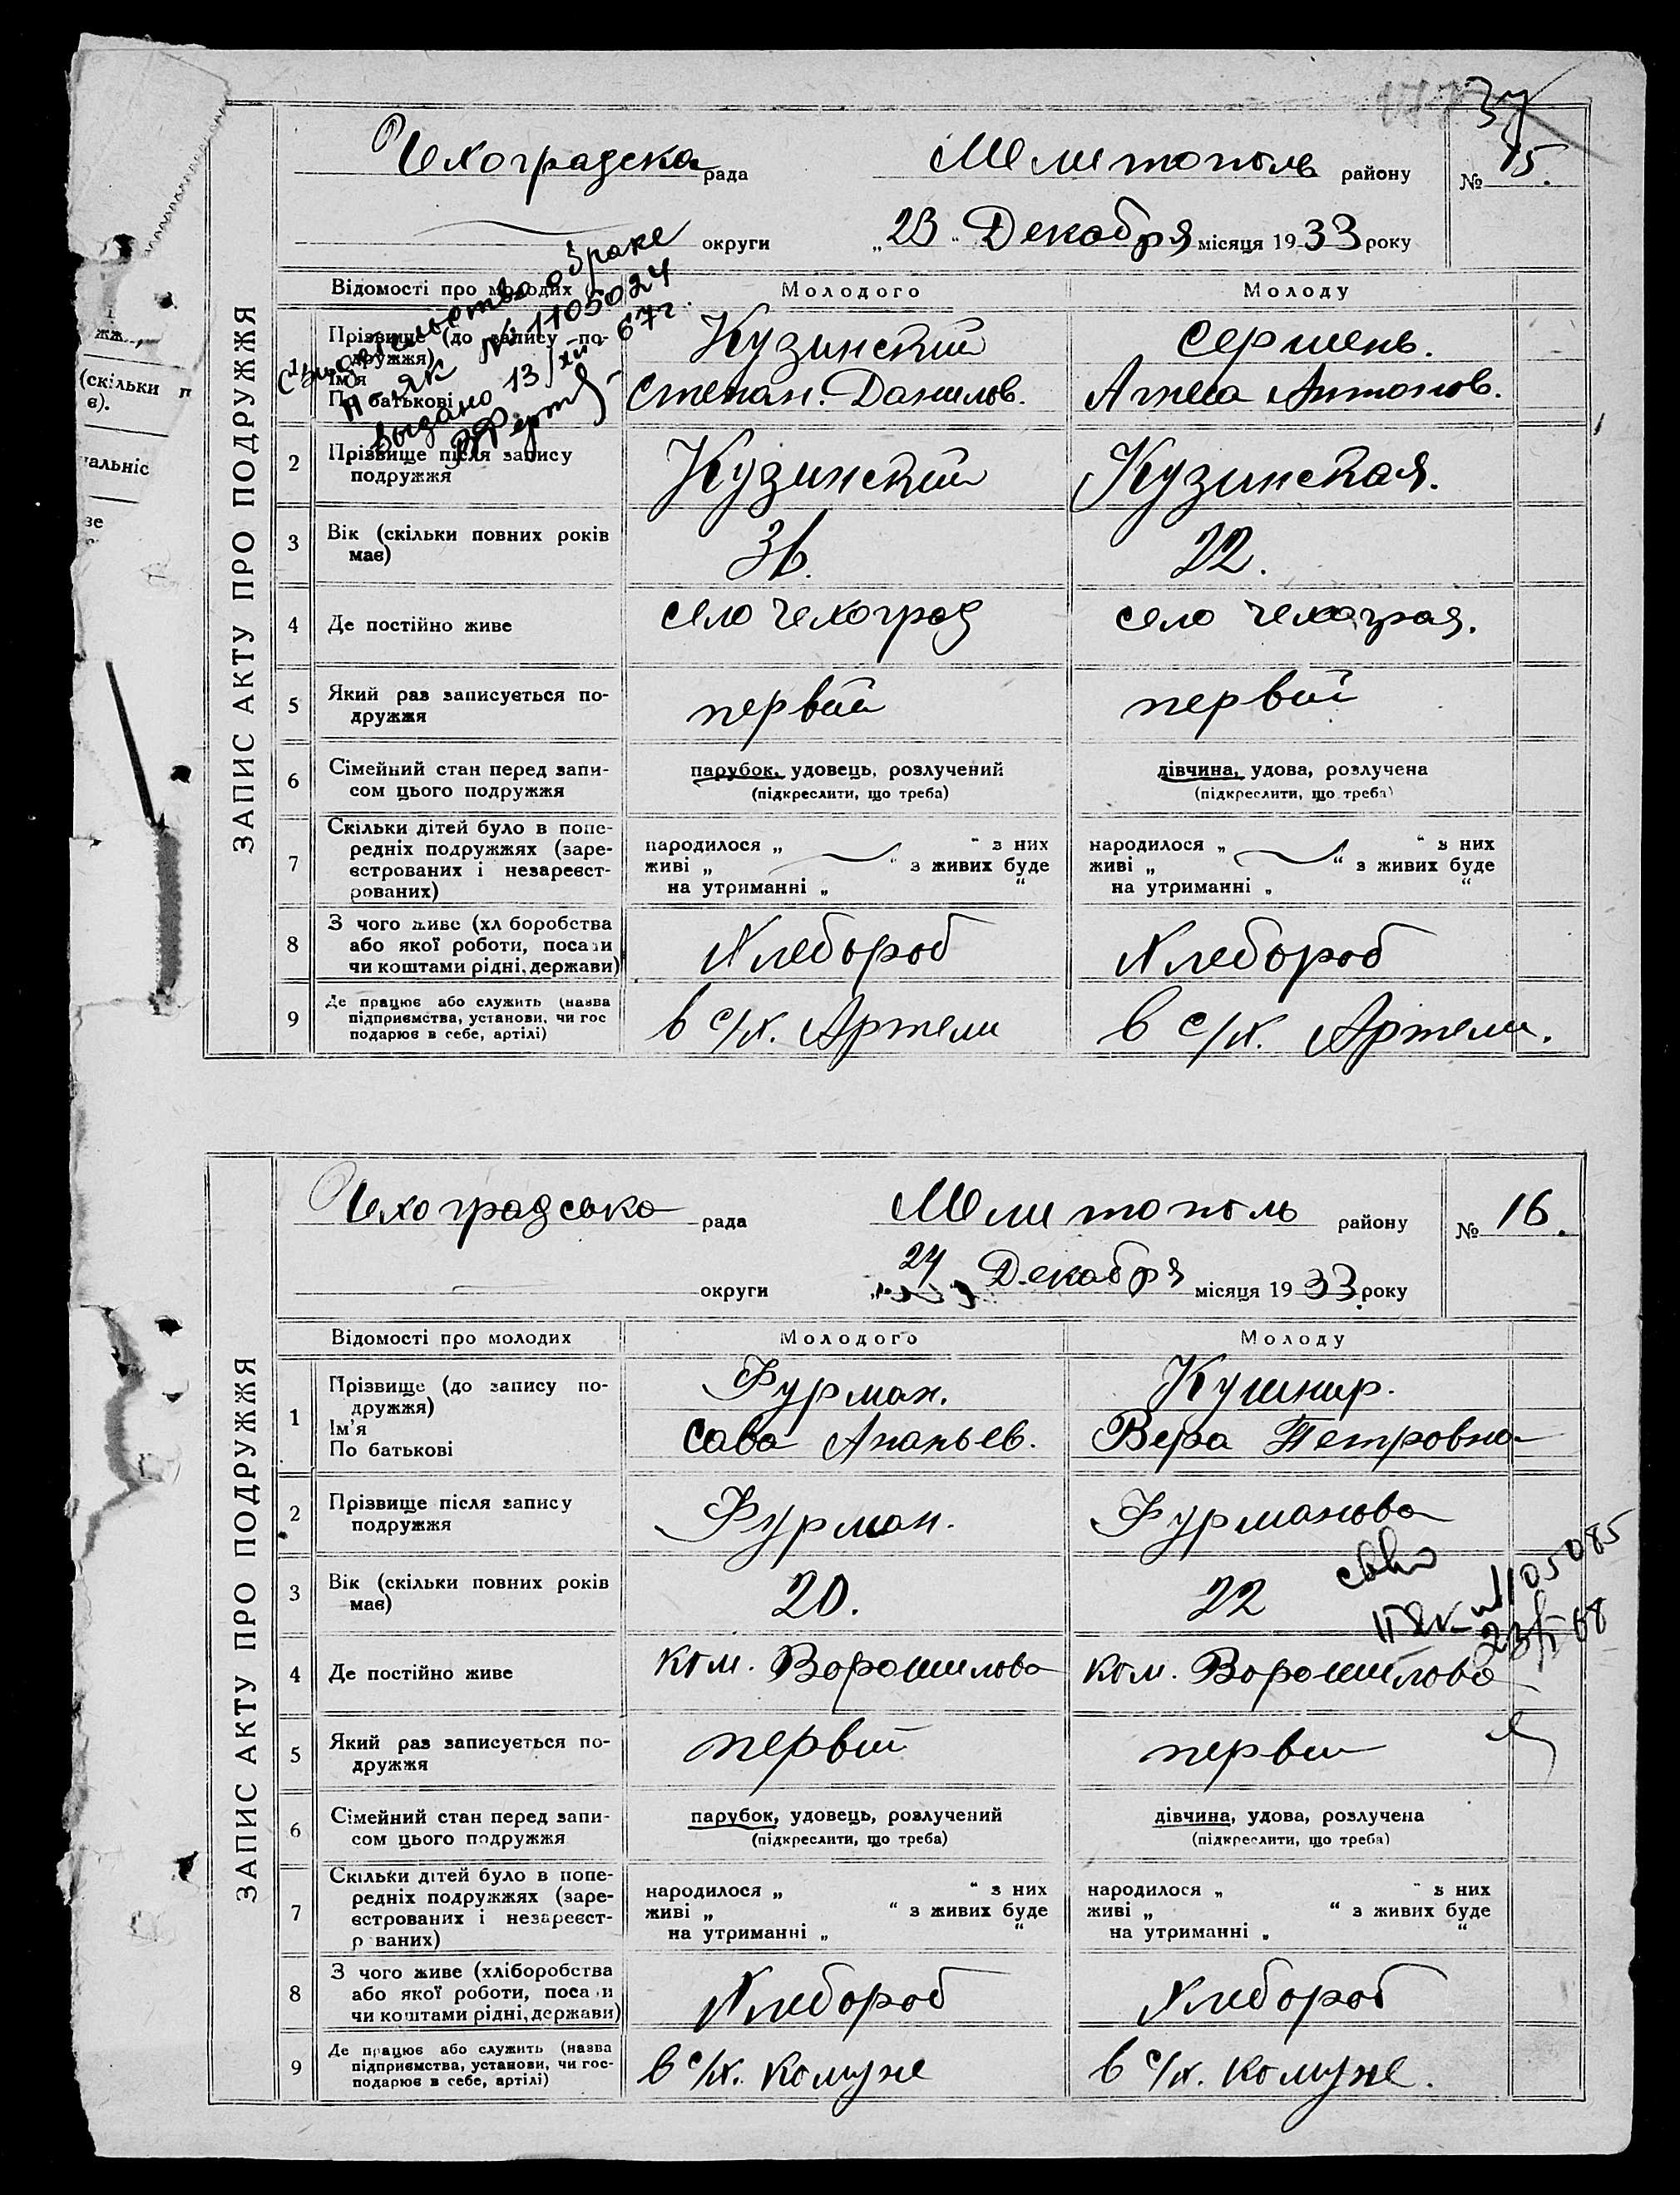 34
Чехоградска рада Мелитополь району № 15.
округи „23“ Декабря місяця 1933 року
ЗАПИС АКТУ ПРО ПОДРУЖЖЯ
Відомості про молодих
Молодого
Молоду
Свидетельство о браке
II-ЯК № 1105024
выдано 13/XII 67г.
1
Прізвище (до запису по-
дружжя)
Ім'я
По батькові
Кузинский
Степан. Данилов.
Сершень.
Агнеса Антонов.
2
Прізвище після запису
подружжя
Кузинский
Кузинская.
3
Вік (скільки повних років
має)
36.
22.
4
Де постійно живе
село Чехоград
село Чехоград.
5
Який раз записується по-
дружжя
первий
первий
6
Сімейний стан перед запи-
сом цього подружжя
парубок, удовець, розлучений
(підкреслити, що треба)
дівчина, удова, розлучена
(підкреслити, що треба)
7
Скільки дітей було в попе-
редніх подружжях (заре-
єстрованих і незареєст-
рованих)
народилося „ “ з них
живі „ “ з живих буде
на утриманні „ “
народилося „ “ з них
живі „ “ з живих буде
на утриманні „ “
8
З чого живе (хл боробства
або якої роботи, посади
чи коштами рідні, держави)
Хлебороб
Хлебороб
9
Де працює або служить (назва
підприємства, установи, чи гос
подарює в себе, артілі)
в с/х. Артели
в с/х. Артели.
Чехоградсько рада Мелитополь району № 16.
округи 24 Декабря місяця 1933 року
ЗАПИС АКТУ ПРО ПОДРУЖЖЯ
Відомості про молодих
Молодого
Молоду
1
Прізвище (до запису по-
дружжя)
Ім'я
По батькові
Фурман.
Сава Ананьев.
Кушнир.
Вера Петровна
2
Прізвище після запису
подружжя
Фурман.
Фурманова
3
Вік (скільки повних років
має)
20.
22
II ЯК № 1105085
23/V 68
4
Де постійно живе
ком. Ворошилова
ком. Ворошилова
5
Який раз записується по-
дружжя
первий
перви
6
Сімейний стан перед запи-
сом цього подружжя
парубок, удовець, розлучений
(підкреслити, що треба)
дівчина, удова, розлучена
(підкреслити, що треба)
7
Скільки дітей було в попе-
редніх подружжях (заре-
єстрованих і незареєст-
р ваних)
народилося „ “ з них
живі „ “ з живих буде
на утриманні „ “
народилося „ “ з них
живі „ “ з живих буде
на утриманні „ “
8
З чого живе (хліборобства
або якої роботи, поса и
чи коштами рідні, держави)
Хлебороб
Хлебороб
9
Де працює або служить (назва
підприємства, установи, чи гос-
подарює в себе, артілі)
в с/х. комуне
в с/х. комуне.
жж
(скільки п
є).
альніс